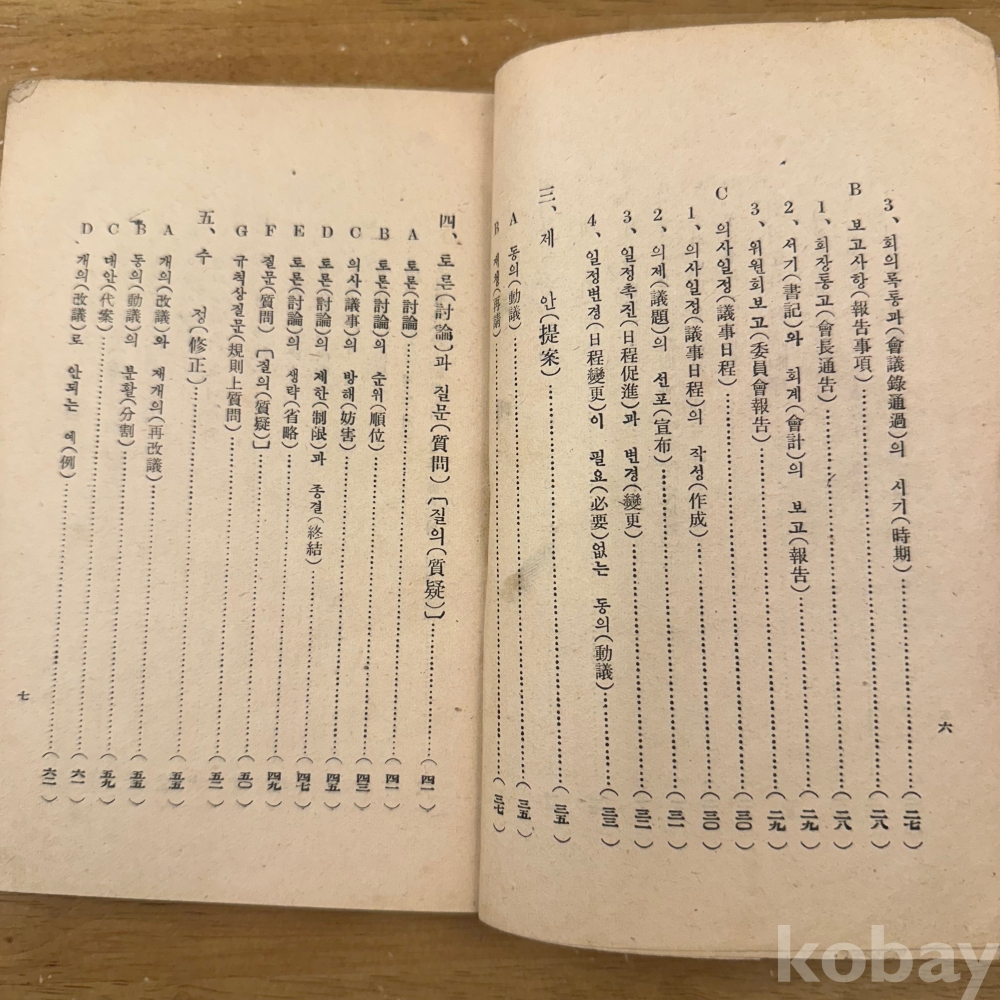 3、회의록통과(會議錄通過)의 시기(時期)……………(二七)
B 보고사항(報告事項)……………(二八)
1、회장통고(會長通告)……………(二八)
2、서기(書記)와 회계(會計)의 보고(報告)……………(二九)
3、위원회보고(委員會報告)……………(二九)
C 의사일정(議事日程)……………(三〇)
1、의사일정(議事日程)의 작성(作成)……………(三〇)
2、의제(議題)의 선포(宣布)……………(三一)
3、일정촉진(日程促進)과 변경(變更)……………(三二)
4、일정변경(日程變更)이 필요(必要)없는 동의(動議)……………(三三)
三、제 안(提案)……………(三五)
A 동의(動議)……………(三五)
B ……………(三七)
六
四、토론(討論)과 질문(質問)〔질의(質疑)〕……………(四一)
A 토론(討論)……………(四一)
B 토론(討論)의 순위(順位)……………(四三)
C 의사(議事)의 방해(妨害)……………(四五)
D 토론(討論)의 제한(制限)과 종결(終結)……………(四七)
E 토론(討論)의 생략(省略)……………(四九)
F 질문(質問)〔질의(質疑)〕……………(五〇)
G 규칙상질문(規則上質問)……………(五二)
五、수 정(修正)……………(五五)
A 개의(改議)와 재개의(再改議)……………(五五)
B 동의(動議)의 분할(分割)……………(五九)
C 대안(代案)……………(六一)
D 개의(改議)로 안되는 예(例)……………(六二)
七
kobay